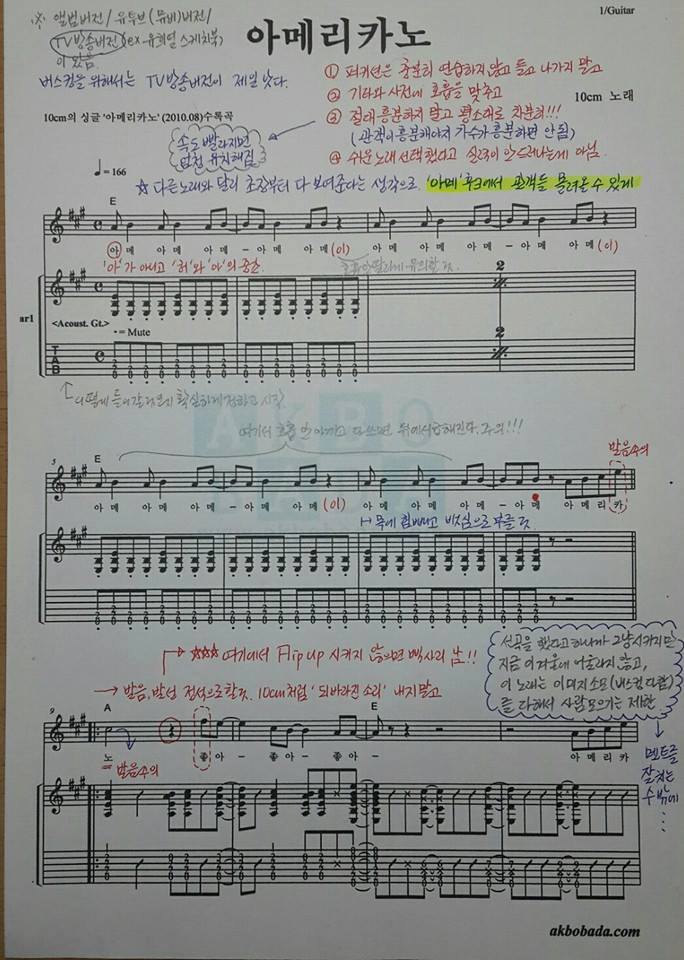 1/Guitar
※ 앨범버전/ 유투브(뮤비)버전/
TV방송버전(ex-유희열 스케치북)
이 있음
아메리카노
버스킹을 위해서는 TV방송버전이 제일 낫다.
① 퍼커션은 충분히 연습하지 않고 들고 나가지 말고
② 기타와 사전에 호흡을 맞추고
③ 절대 흥분하지 말고 평소대로 차분히!!!
(관객이 흥분해야지 가수가 흥분하면 안됨)
④ 쉬운노래 선택했다고 실력이 안드러나는게 아님.
10cm의 싱글 '아메리카노' (2010.08)수록곡
10cm 노래
속도 빨라지면
엄청 유치해짐
♩= 166
☆ 다른노래와 달리 초장부터 다 보여준다는 생각으로. '아메' 후크에서 관객들 몰려올 수 있게
E
아 메 아 메 아 메 - 아 메 (이) 아 메 아 메 아 메 - 아 메 (이)
'아'가 아니고 '허'와 '아'의 중간
ar1
<Acoust. Gt.>
• = Mute
2
2
TAB
어떻게 들어갈 것인지 확실하게 정하고 시작
여기서 호흡 안 아끼고 다쓰면 뒤에서 답해진다. 주의!!!
발음주의
5
E
아 메 아 메 아 메 - 아 메 (이) 아 메 아 메 아 메 - 아 메 아 메 리 카
목에 힘빼고 비성으로 부를 것
→ ☆☆☆ 여기에서 Flip up 시키지 않으면 삑사리 남!!
→ 발음, 발성 정석으로 할 것. 10cm처럼 '되바라진 소리' 내지 말고
선곡을 했다고하니까 그냥시키지만
이 노래는 이미지소모(버스킹 다함)
를 다해서 사람모으기는 제한
멘트를
잘 치는
수 밖에
⋮
9
A
E
노 좋아 - 좋아 - 좋아 - 아 메 리 카
= 발음주의
akbobada.com